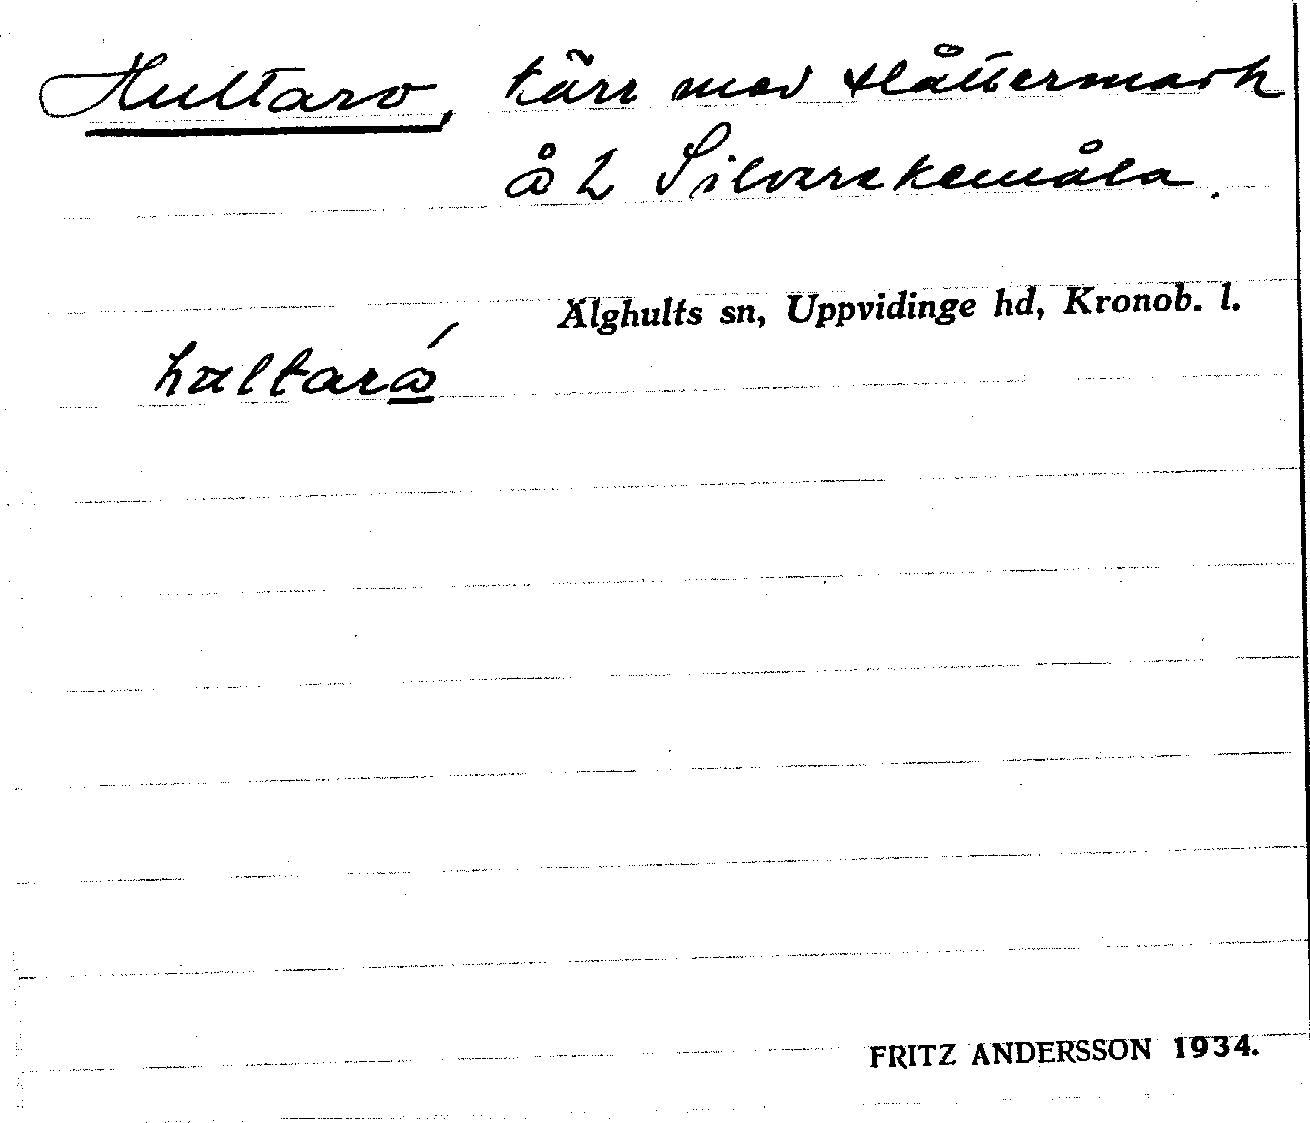 Hultaro, kärr med slåttermark
å L Silverekemåla.
Älghults sn, Uppvidinge hd, Kronob. l.
hultarǻ
FRITZ ANDERSSON 1934.